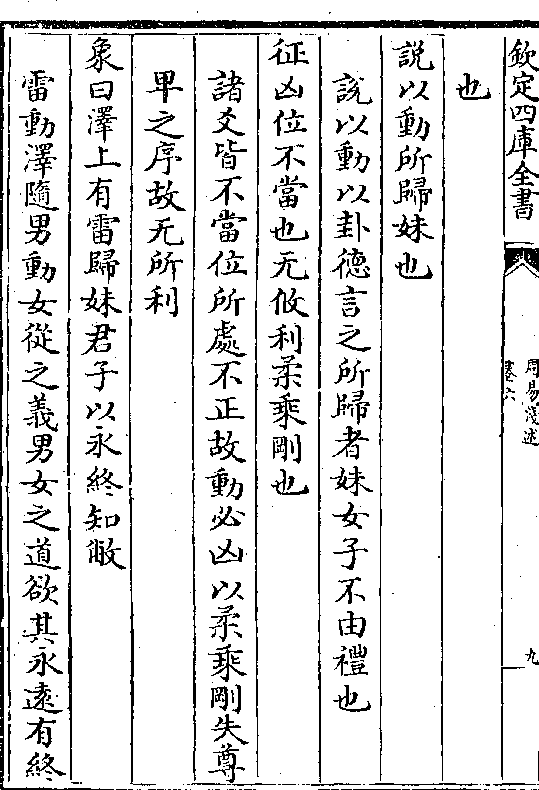 欽定四庫全書
周易淺述
卷六
九
也
說以動所歸妹也
說以動以卦德言之所歸者妹女子不由禮也
征凶位不當也无攸利柔乘剛也
諸爻皆不當位所處不正故動必凶以柔乘剛失尊
卑之序故无所利
象曰澤上有雷歸妹君子以永終知敝
雷動澤隨男動女從之義男女之道欲其永遠有終